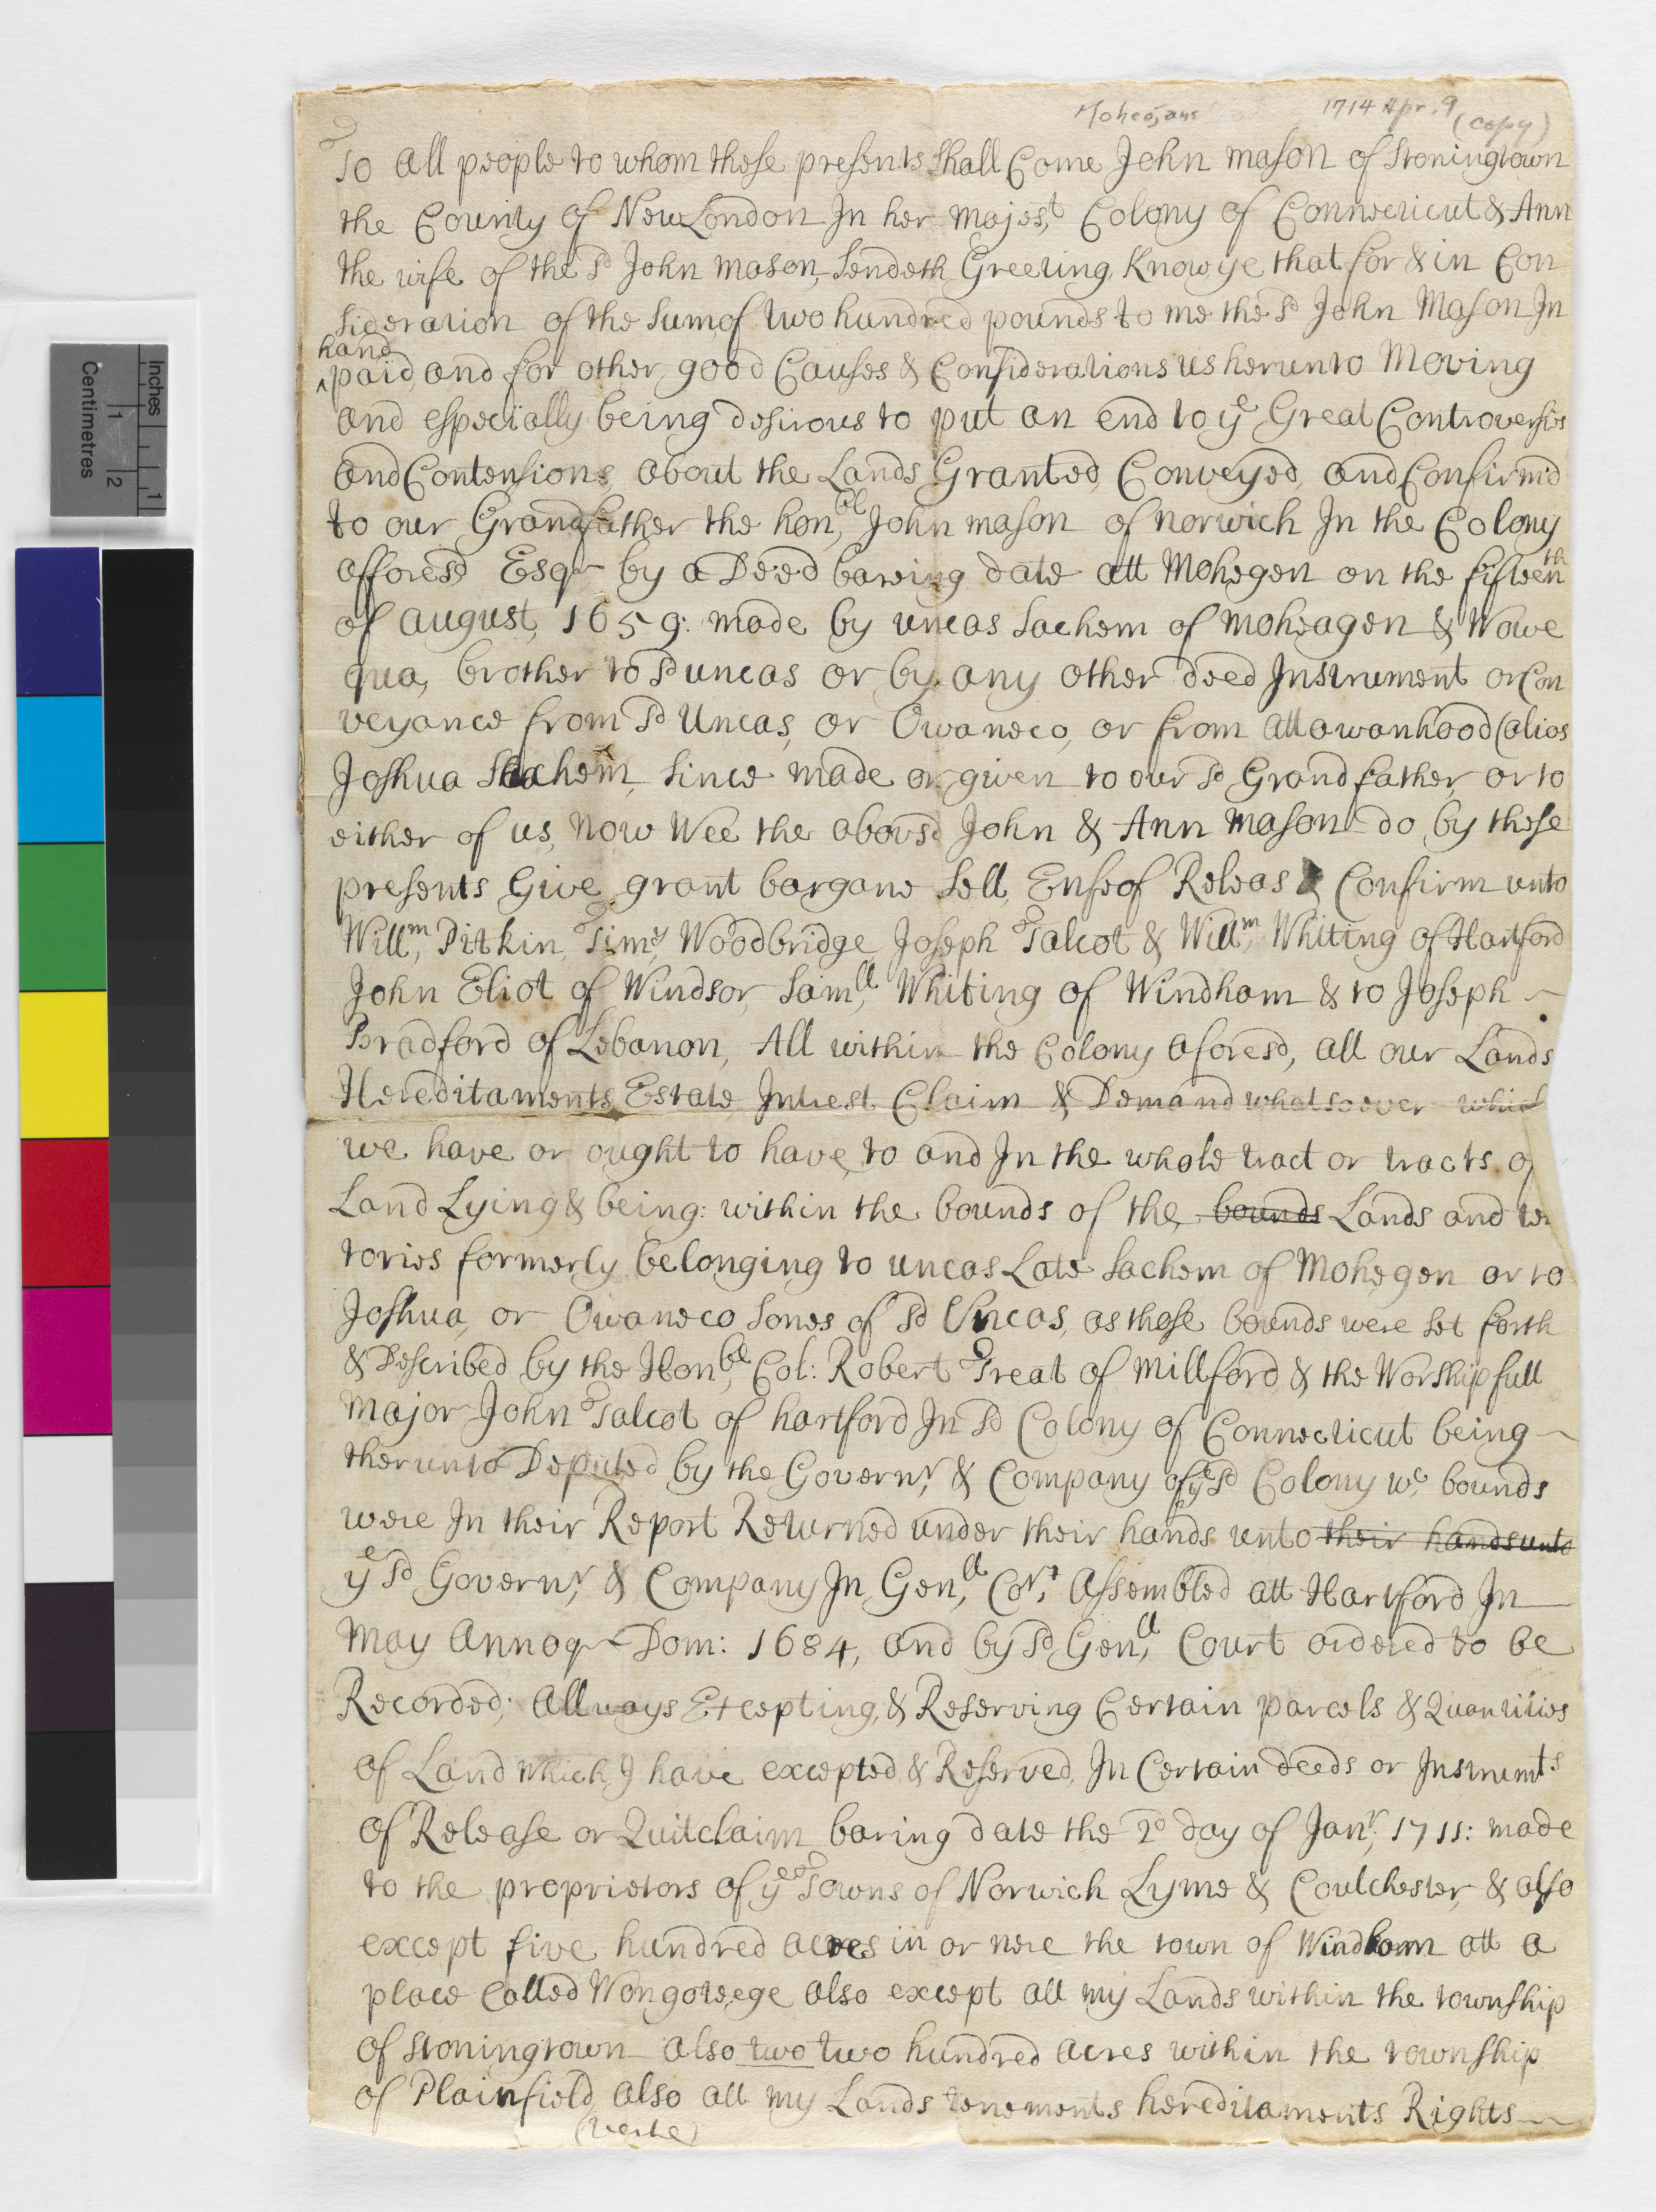 Inches
1
Centimetres
1 2
Mohegans 1714 Apr. 9 (copy)
To all people to whom these presents shall Come John Mason of Stoningtown
the County of New London In her Majest Colony of Connecticut & Ann
the wife of the sd John Mason, Sendeth Greeting, Know ye that for & in Con
sideration of the Sum of two hundred pounds to me the sd John Mason In
hand
^paid, and for other good Causes & Considerations us herunto Moving
and especially being desirous to put an end to ye Great Controversies
and Contensions about the Lands Granted, Conveyed, and Confirmd
to our Grandfather the honbl John mason of norwich In the Colony
afforesd Esqr by a Deed bareing date att Mohegen on the fifteenth
of august, 1659: made by uncas Sachem of moheagen & Wawe
qua, brother to sd uncas or by any other deed Instrument or Con
veyance from sd Uncas, or Owaneco, or from attawanhood (alias
Joshua Sachem, since made or given to our sd Grandfather, or to
either of us, Now Wee the abovsd John & Ann Mason do by these
presents Give grant bargane Sell, Enfeof Releas & Confirm unto
Willm, Pitkin, Timy, Woodbridge, Joseph Talcot & Willm, Whiting of Hartford
John Eliot of Windsor, Samll, Whiting of Windham & to Joseph
Bradford of Lebanon, All within the Colony aforesd, all our Lands
Hereditaments, Estate Intrest Claim & Demand whatsoever which
we have or ought to have, to and In the whole tract or tracts of
Land Lying & being: within the bounds of the bounds Lands and ter
tories formerly belonging to uncas Late Sachem of Mohegen or to
Joshua, or Owaneco Sones of sd Uncas, as those bounds were set forth
& Described by the Honbl, Col: Robert Treat of Millford, & the Worshipfull
Major John Talcot of hartford In sd Colony of Connecticut being
therunto Deputed by the Governr, & Company of ye sd Colony wc bounds
were In their Report Returned under their hands unto their hands unto
ye sd Governr, & Company In Genll, Cort, Assembled att Hartford In
May Annoq Dom: 1684, and by sd Genll, Court ordered to be
Recorded; Allways Excepting, & Reserving Certain parcels & Quantities
of Land which I have excepted & Reserved, In Certain deeds or Instrumts
of Release or Quitclaim baring date the 2d day of Janr, 1711: made
to the proprietors of ye Towns of Norwich Lyme & Coulchester, & also
except five hundred acres in or nere the town of Windham att a
place Called Wongoteege also except all my Lands within the township
of Stoningtown also two two hundred acres within the township
of Plainfield, also all my Lands tenements hereditaments Rights